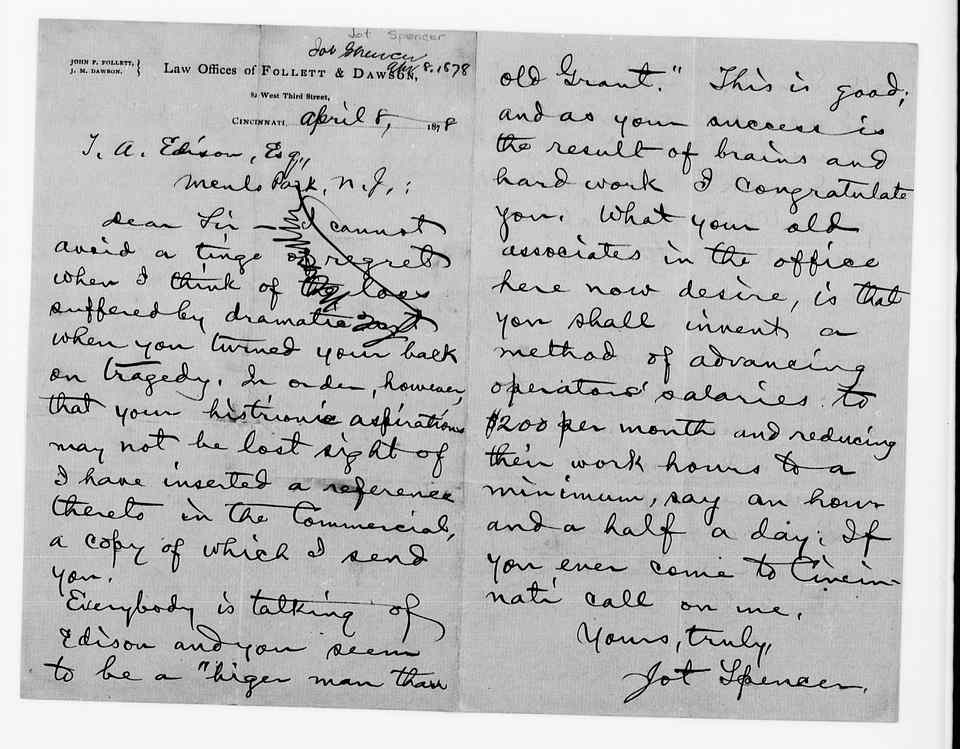 Jot Spencer
Jot Spencer
Apr 8. 1878
JOHN F. FOLLETT,
J. M. DAWSON.
Law Offices of FOLLETT & DAWSON,
82 West Third Street,
CINCINNATI, April 8, 1878
T. A. Edison, Esq.,
Menlo Park, N.J.,:
Dear Sir — I cannot
avoid a tinge of regret
when I think of the loss
suffered by dramatic art
when you turned your back
on tragedy. In order, however,
that your histrionic aspirations
may not be lost sight of
I have inserted a reference
thereto in the Commercial,
a copy of which I send
you.
Everybody is talking of
Edison and you seem
to be a "biger man than
old Grant." This is good;
and as your success is
the result of brains and
hard work I congratulate
you. What your old
associates in the office
here now desire, is that
you shall invent a
method of advancing
operators' salaries to
$200 per month and reducing
their work hours to a
minimum, say an hour
and a half a day. If
you ever come to Cincin-
nati call on me.
Yours, truly,
Jot Spencer.